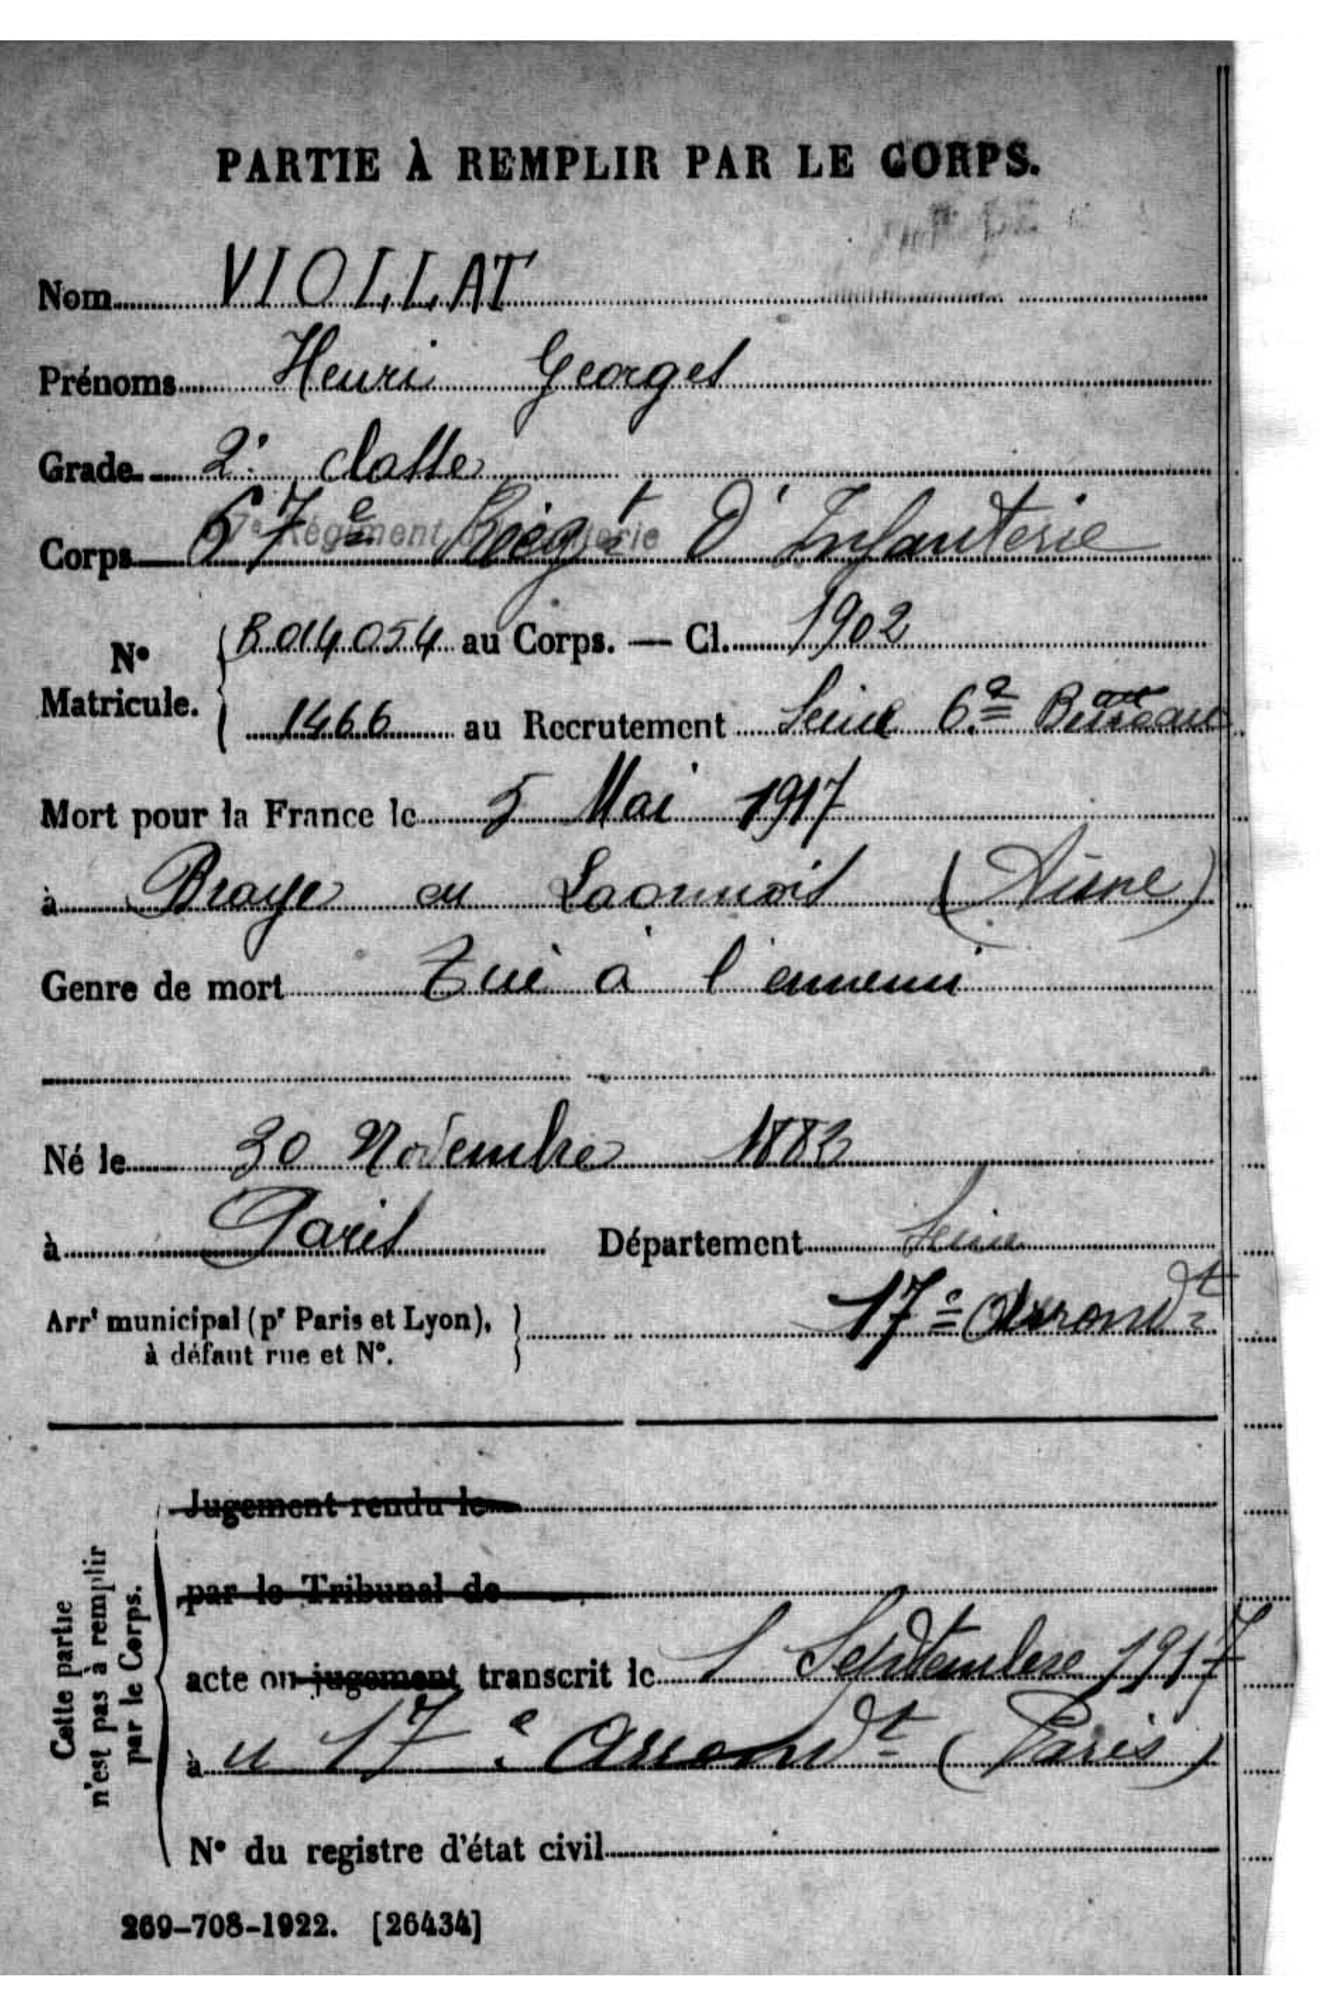 PARTIE À REMPLIR PAR LE CORPS.
Nom VIOLLAT
Prénoms Henri Georges
Grade 2e classe
Corps 67e Régt D'Infanterie
No Matricule. R 014054 au Corps. — Cl. 1902
1466 au Recrutement Seine 6e Bureau
Mort pour la France le 5 Mai 1917
à Braye en Laonnois (Aisne)
Genre de mort Tué à l'ennemi
Né le 30 Novembre 1882
à Paris Département Seine
Arrt municipal (pr Paris et Lyon), 17e Arrondt
à défaut rue et No.
Cette partie
n'est pas à remplir
par le Corps.
Jugement rendu le
par le Tribunal de
acte ou jugement transcrit le 1 Septembre 1917
à u 17e Arrondt (Paris)
No du registre d'état civil
269-708-1922. [26434]